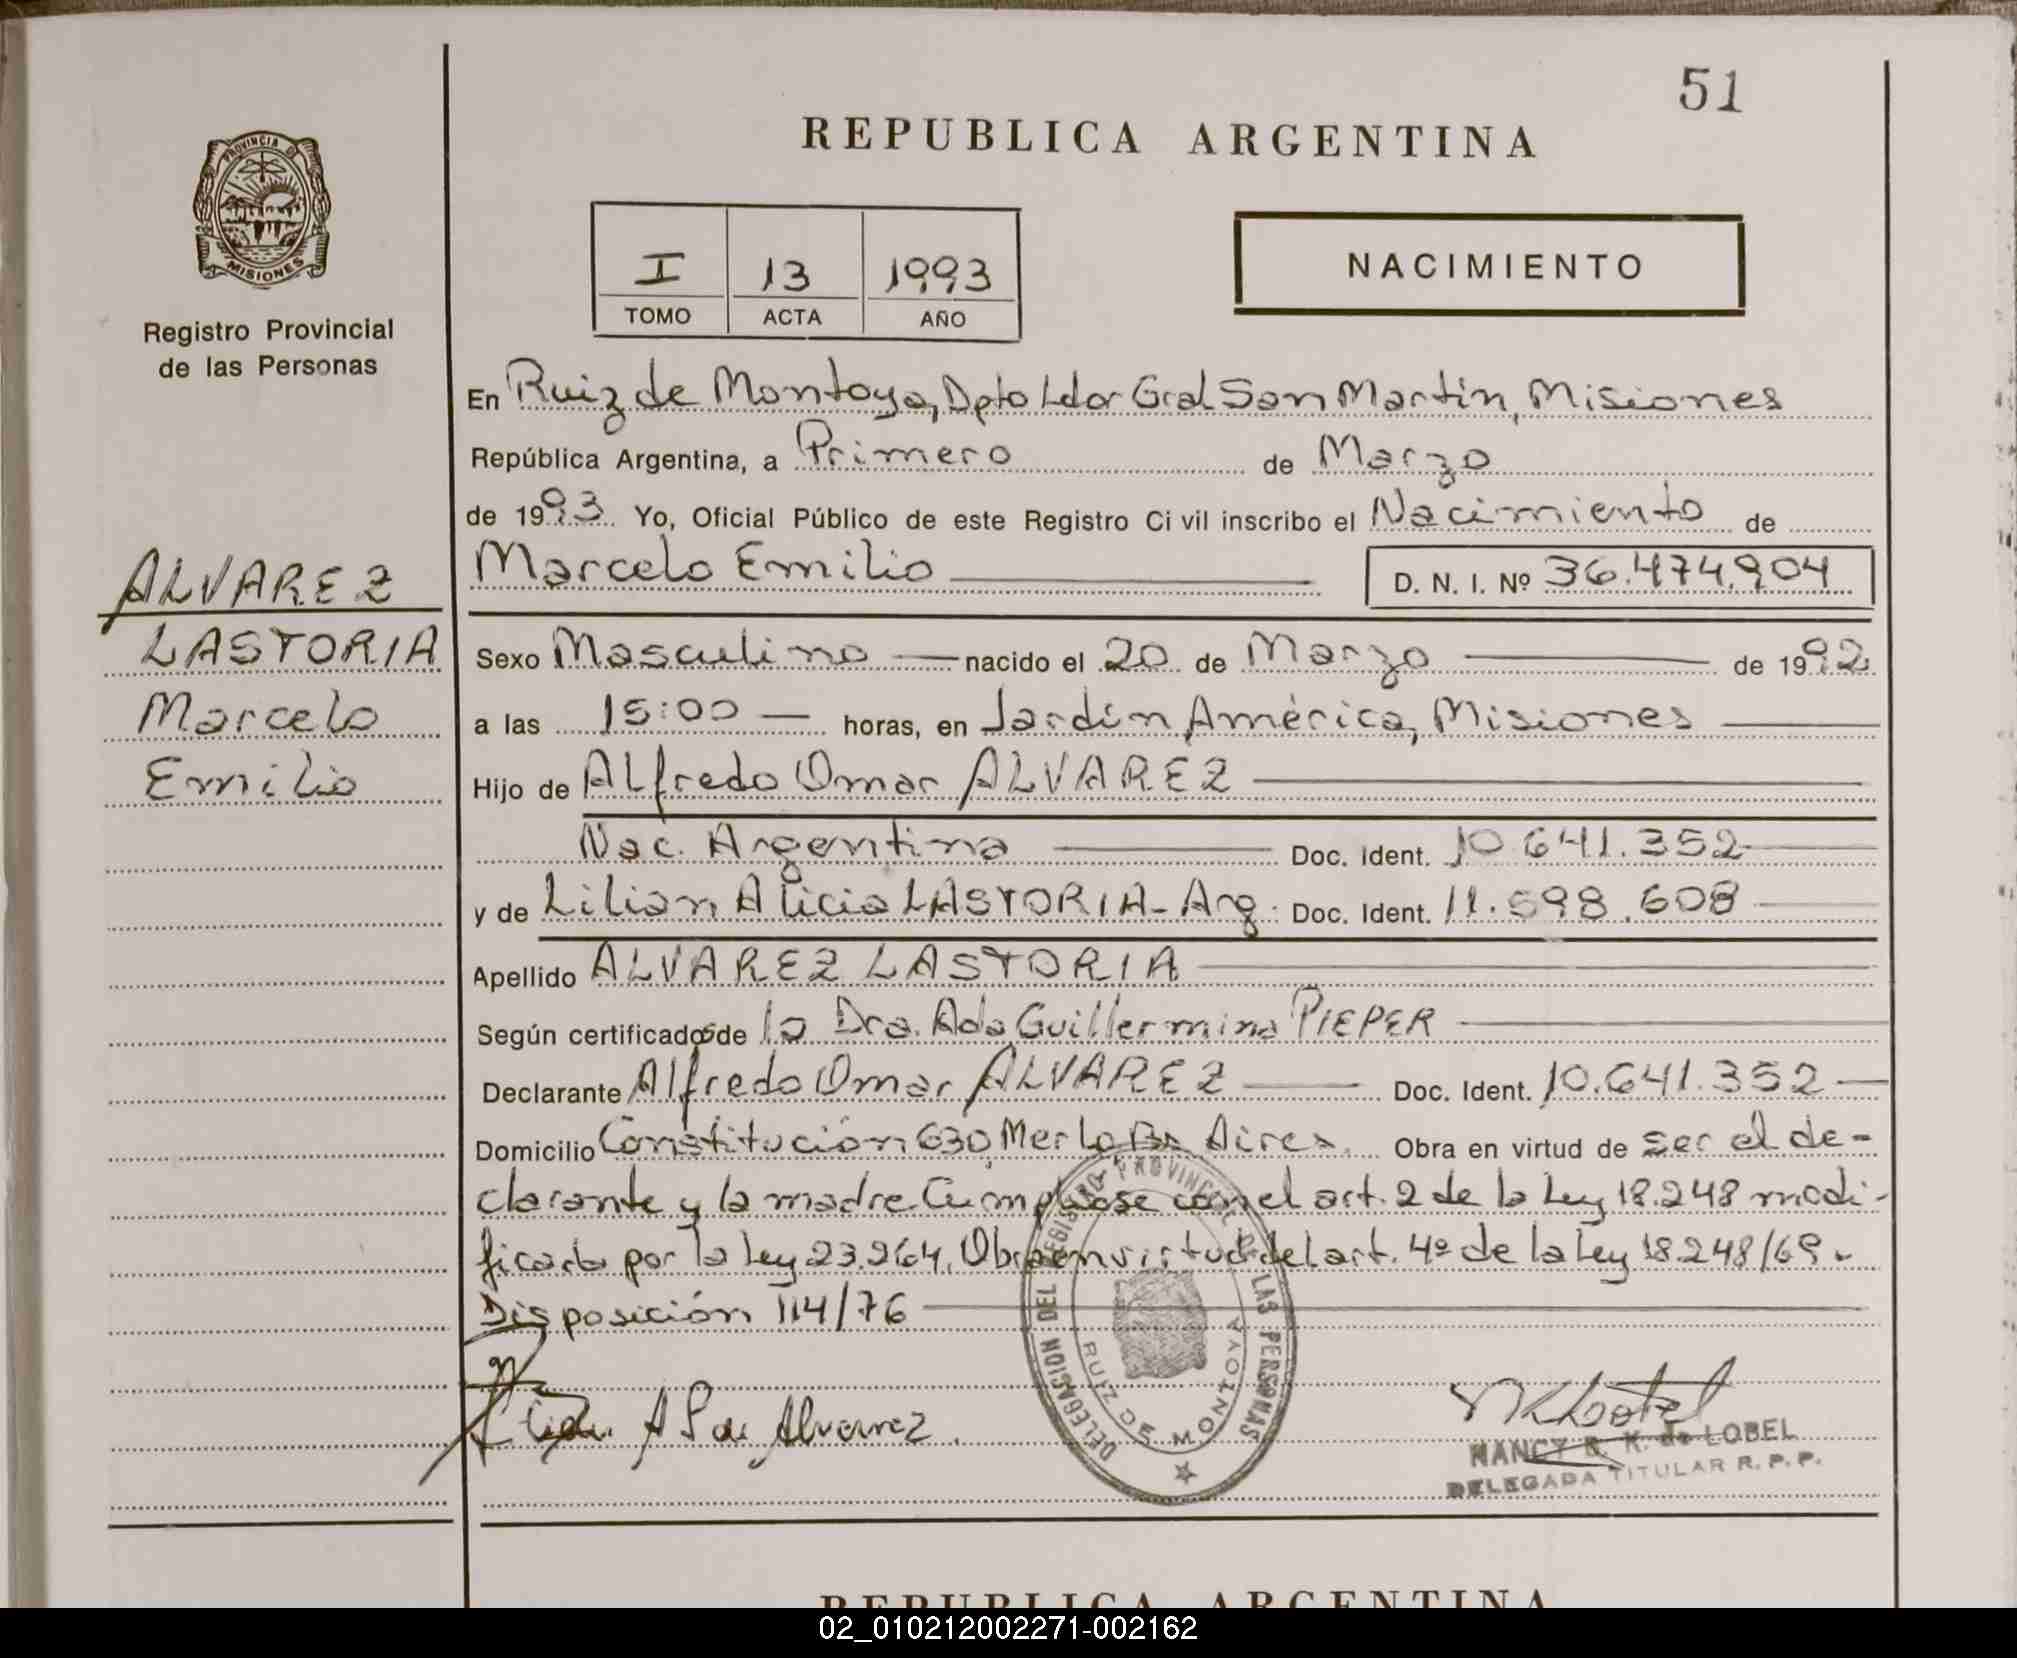 51
REPUBLICA ARGENTINA
PROVINCIA DE
MISIONES
Registro Provincial
de las Personas
I 13 1993
TOMO ACTA AÑO
NACIMIENTO
En Ruiz de Montoya, Dpto Ldor Gral San Martín, Misiones
República Argentina, a Primero de Marzo
de 1993 Yo, Oficial Público de este Registro Ci vil inscribo el Nacimiento de
Marcelo Emilio D. N. I. Nº 36.474.904
ALVAREZ
LASTORIA
Marcelo
Emilio
Sexo Masculino nacido el 20 de Marzo de 1992
a las 15:00 horas, en Jardín América, Misiones
Hijo de Alfredo Omar ALVAREZ
Nac. Argentina Doc. Ident. 10.641.352
y de Lilian Alicia LASTORIA - Arg. Doc. Ident. 11.598.608
Apellido ALVAREZ LASTORIA
Según certificado de la Dra. Ada Guillermina PIEPER
Declarante Alfredo Omar ALVAREZ Doc. Ident. 10.641.352
Domicilio Constitución 630, Merlo Bs Aires. Obra en virtud de ser el de-
clarante y la madre. Cumpliose con el art. 2 de la Ley 18.248 modi-
ficado por la Ley 23.264. Obra en virtud del art. 4º de la Ley 18.248/69.-
Disposición 114/76
DELEGACION DEL REGISTRO PROVINCIAL DE LAS PERSONAS
RUIZ DE MONTOYA
Alvarez
NANCY R. K. de LOBEL
DELEGADA TITULAR R. P. P.
REPUBLICA ARGENTINA
02_010212002271-002162